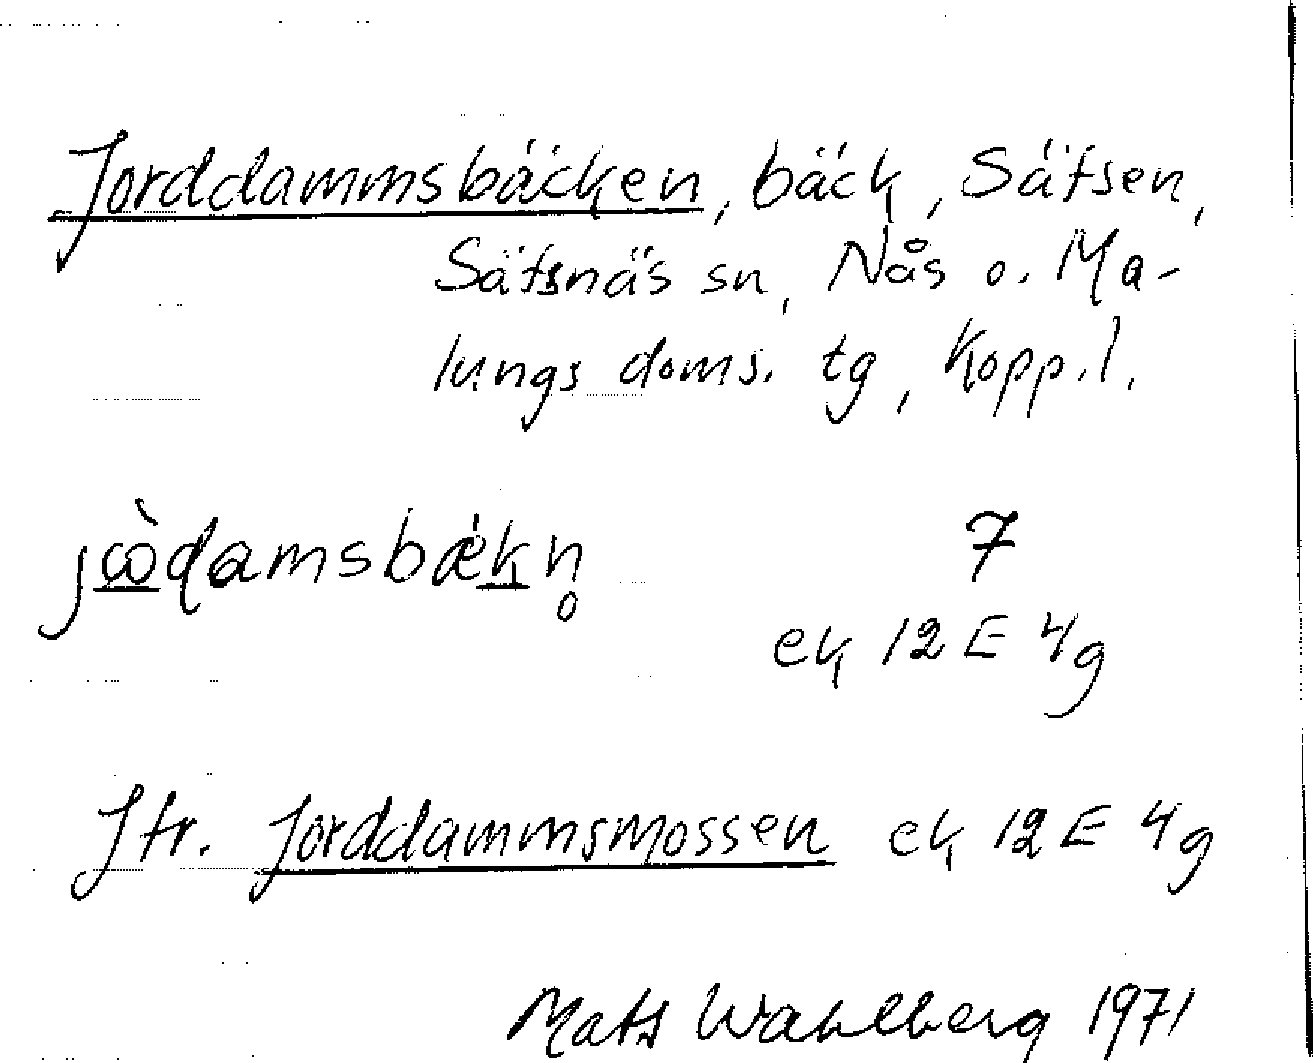 Jorddammsbäcken, bäck, Sätsen,
Sätsnäs sn, Nås o. Ma-
lungs doms. tg, Kopp. l.
jɷ̀ɖamsbǽkn̥ 7
ek 12 E 4g
Jfr. Jorddammsmossen ek 12 E 4g
Mats Wahlberg 1971